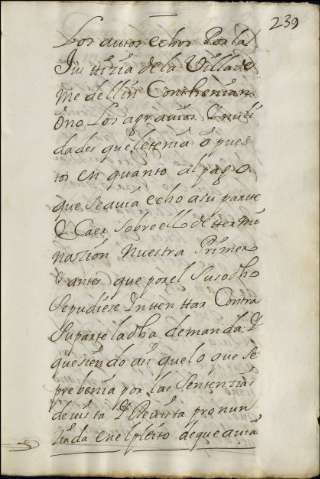 239
los autos echos por la
Justiçia de la Villa de
medellin Confrenian
o no los agrauios
dades que le tenia o pues
tos en quanto al pago
que se auia echo a su parte
Caer sobre ello determi
nasion nuestra Primero
E antes que por el susodho
se pudiese intentar Contra
su parte la dha demanda
que siendo asi que lo que se
prebenia por las sentenzias
de uista E Reuista pronun
ziada en el pleito de que auia